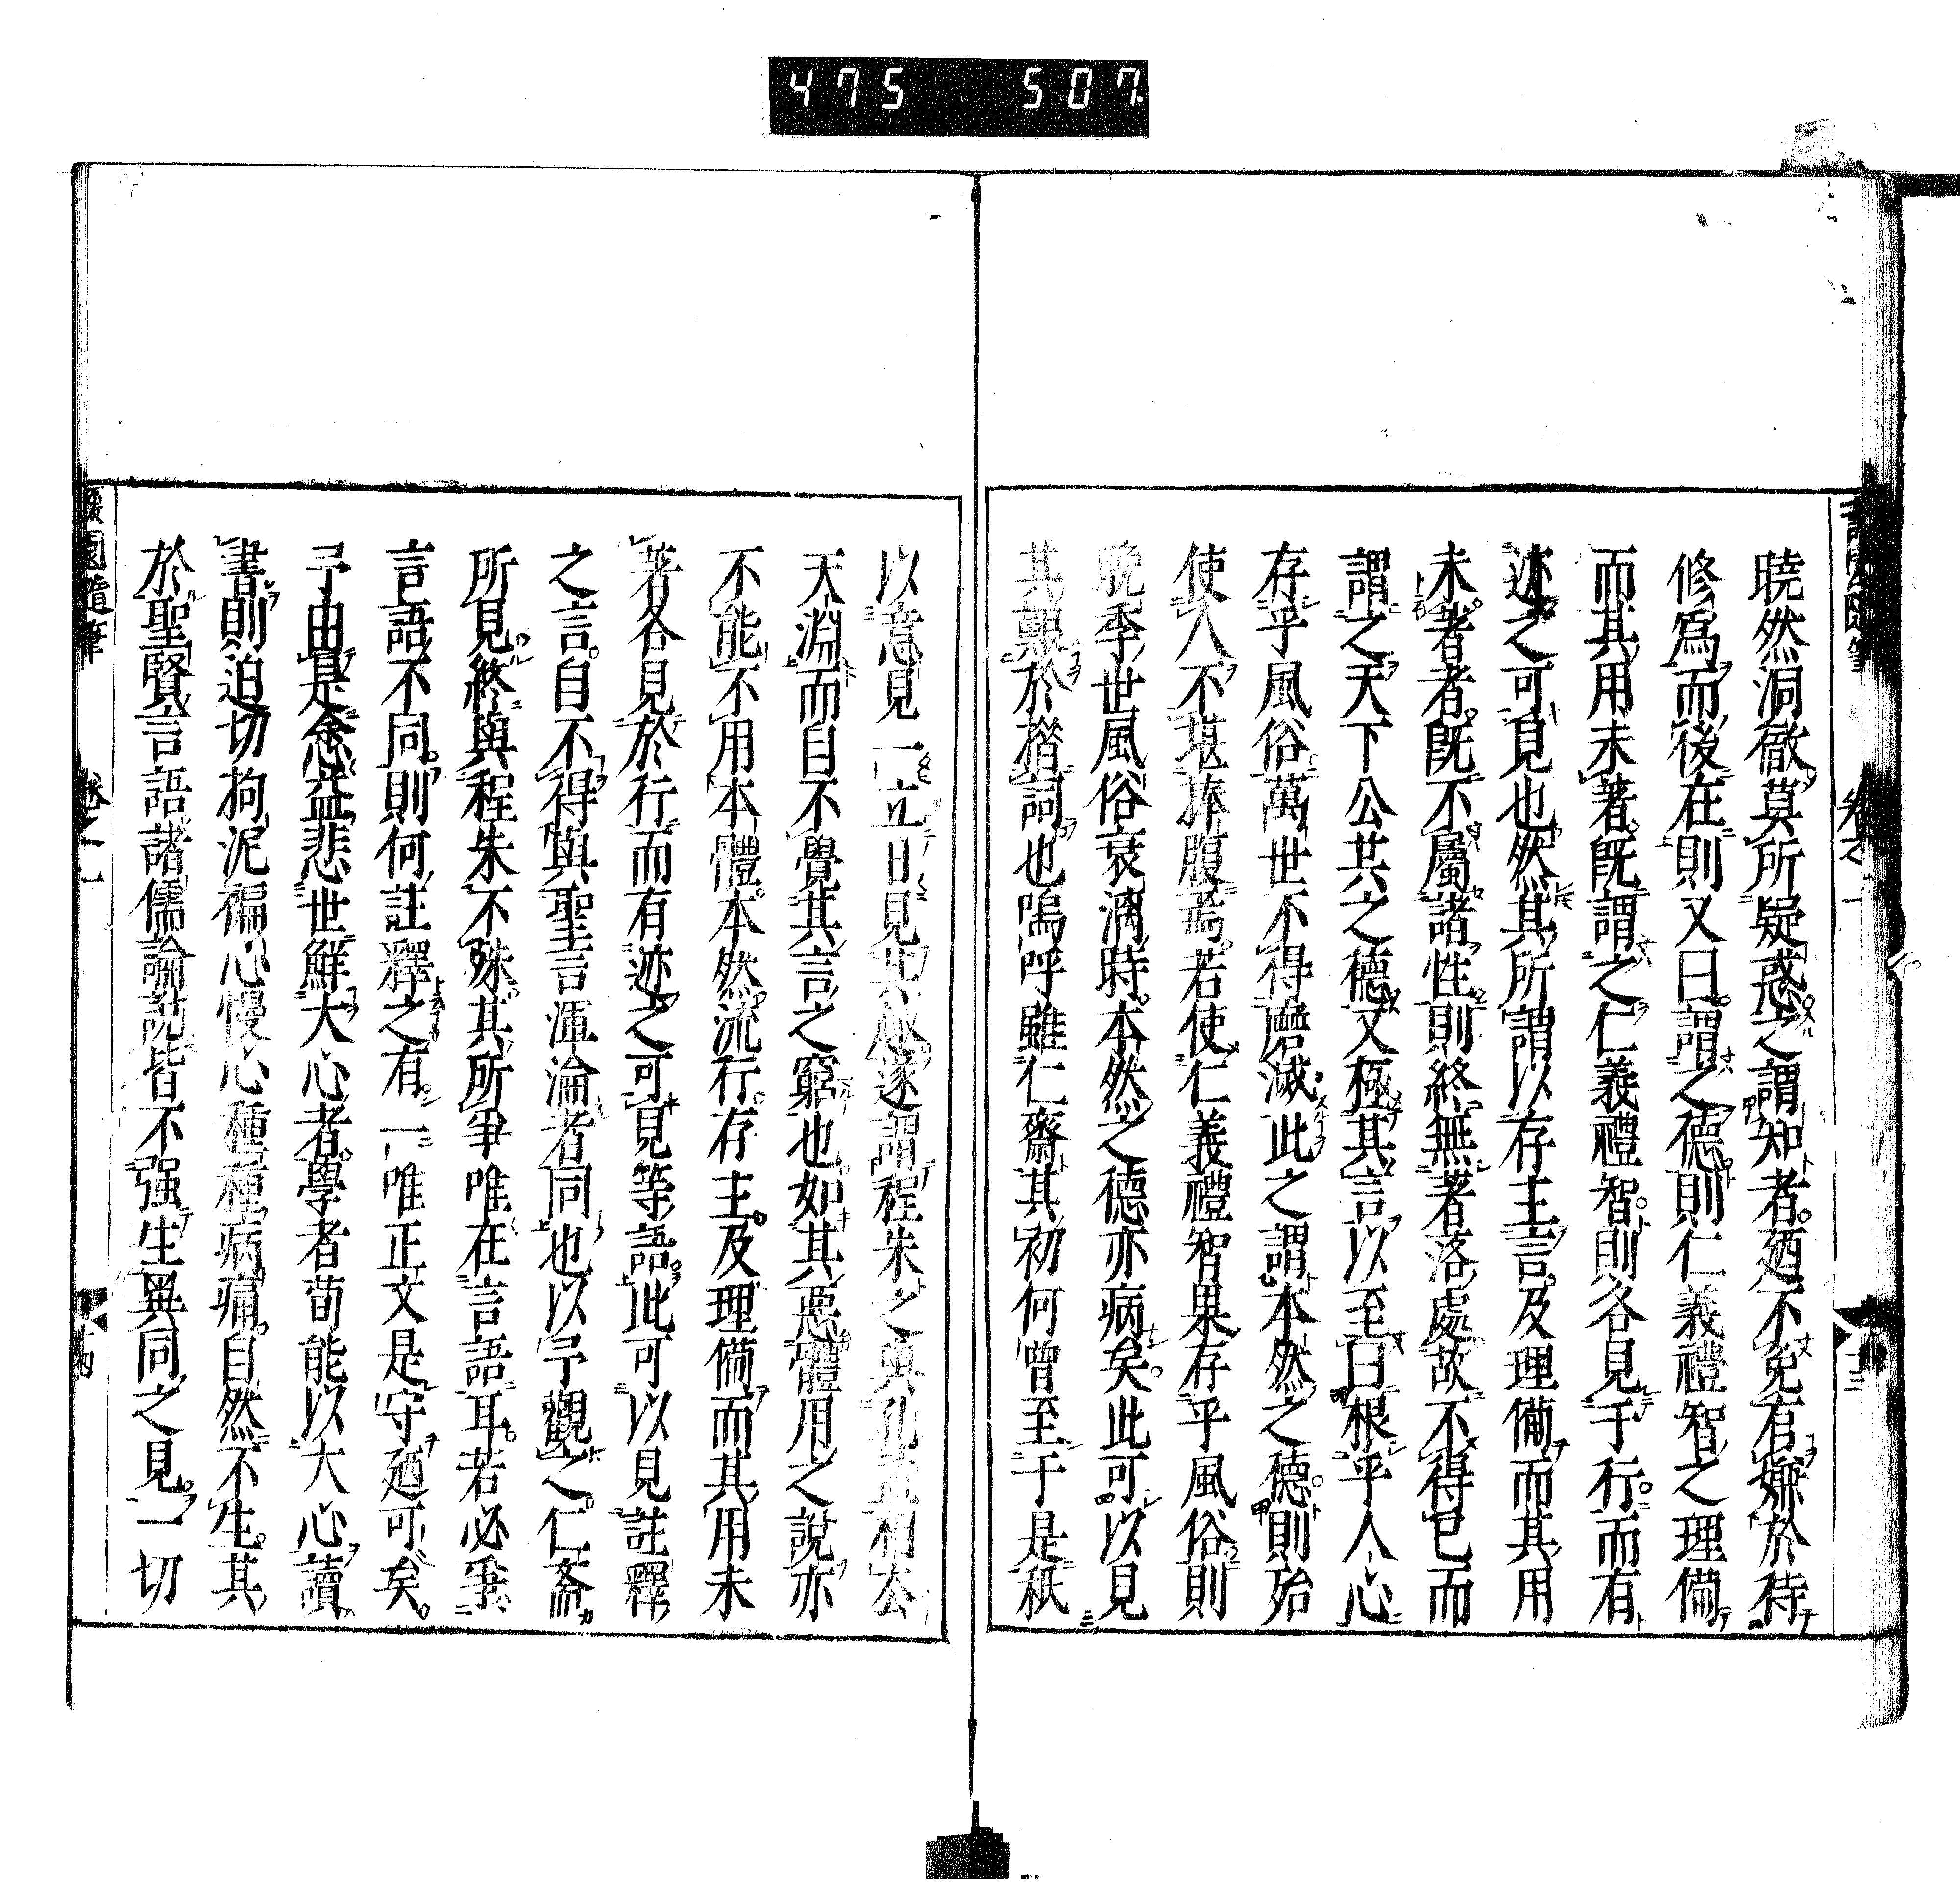 475 507
曉然洞徹莫所疑惑之謂知者廼不免有嫌於待
修爲而後在則又曰謂之德則仁義禮智之理備
而其用未著既謂之仁義禮智則各見于行而有
迹之可見也然其所謂以存主言及理備而其用
未著者既不屬諸性則終無著落處故不得已而
謂之天下公共之德又極其言以至曰根乎人心
存乎風俗萬世不得磨滅此之謂本然之德則殆
使人不堪捧腹焉若使仁義禮智果存乎風俗則
晩季世風俗衰漓時本然之德亦病矣此可以見
其艱於撘詞也嗚呼雖仁齋其初何曾至于是秖
以意見一立日見其遂謂程朱之與孔孟相去
天淵而自不覺其言之窮也如其惡體用之說亦
不能不用本體本然流行存主及理備而其用未
著各見於行而有迹之可見等語此可以見註釋
之言自不得與聖言渾淪者同也以予觀之仁斎
所見終與程朱不殊其所爭唯在言語耳若必爭
言語不同則何註釋之有一唯正文是守廼可矣
予由是念益悲世鮮大心者學者苟能以大心讀
書則迫切拘泥褊心慢心種種病痛自然不生其
於聖賢言語諸儒論說皆不强生異同之見一切
園隨筆 卷之一